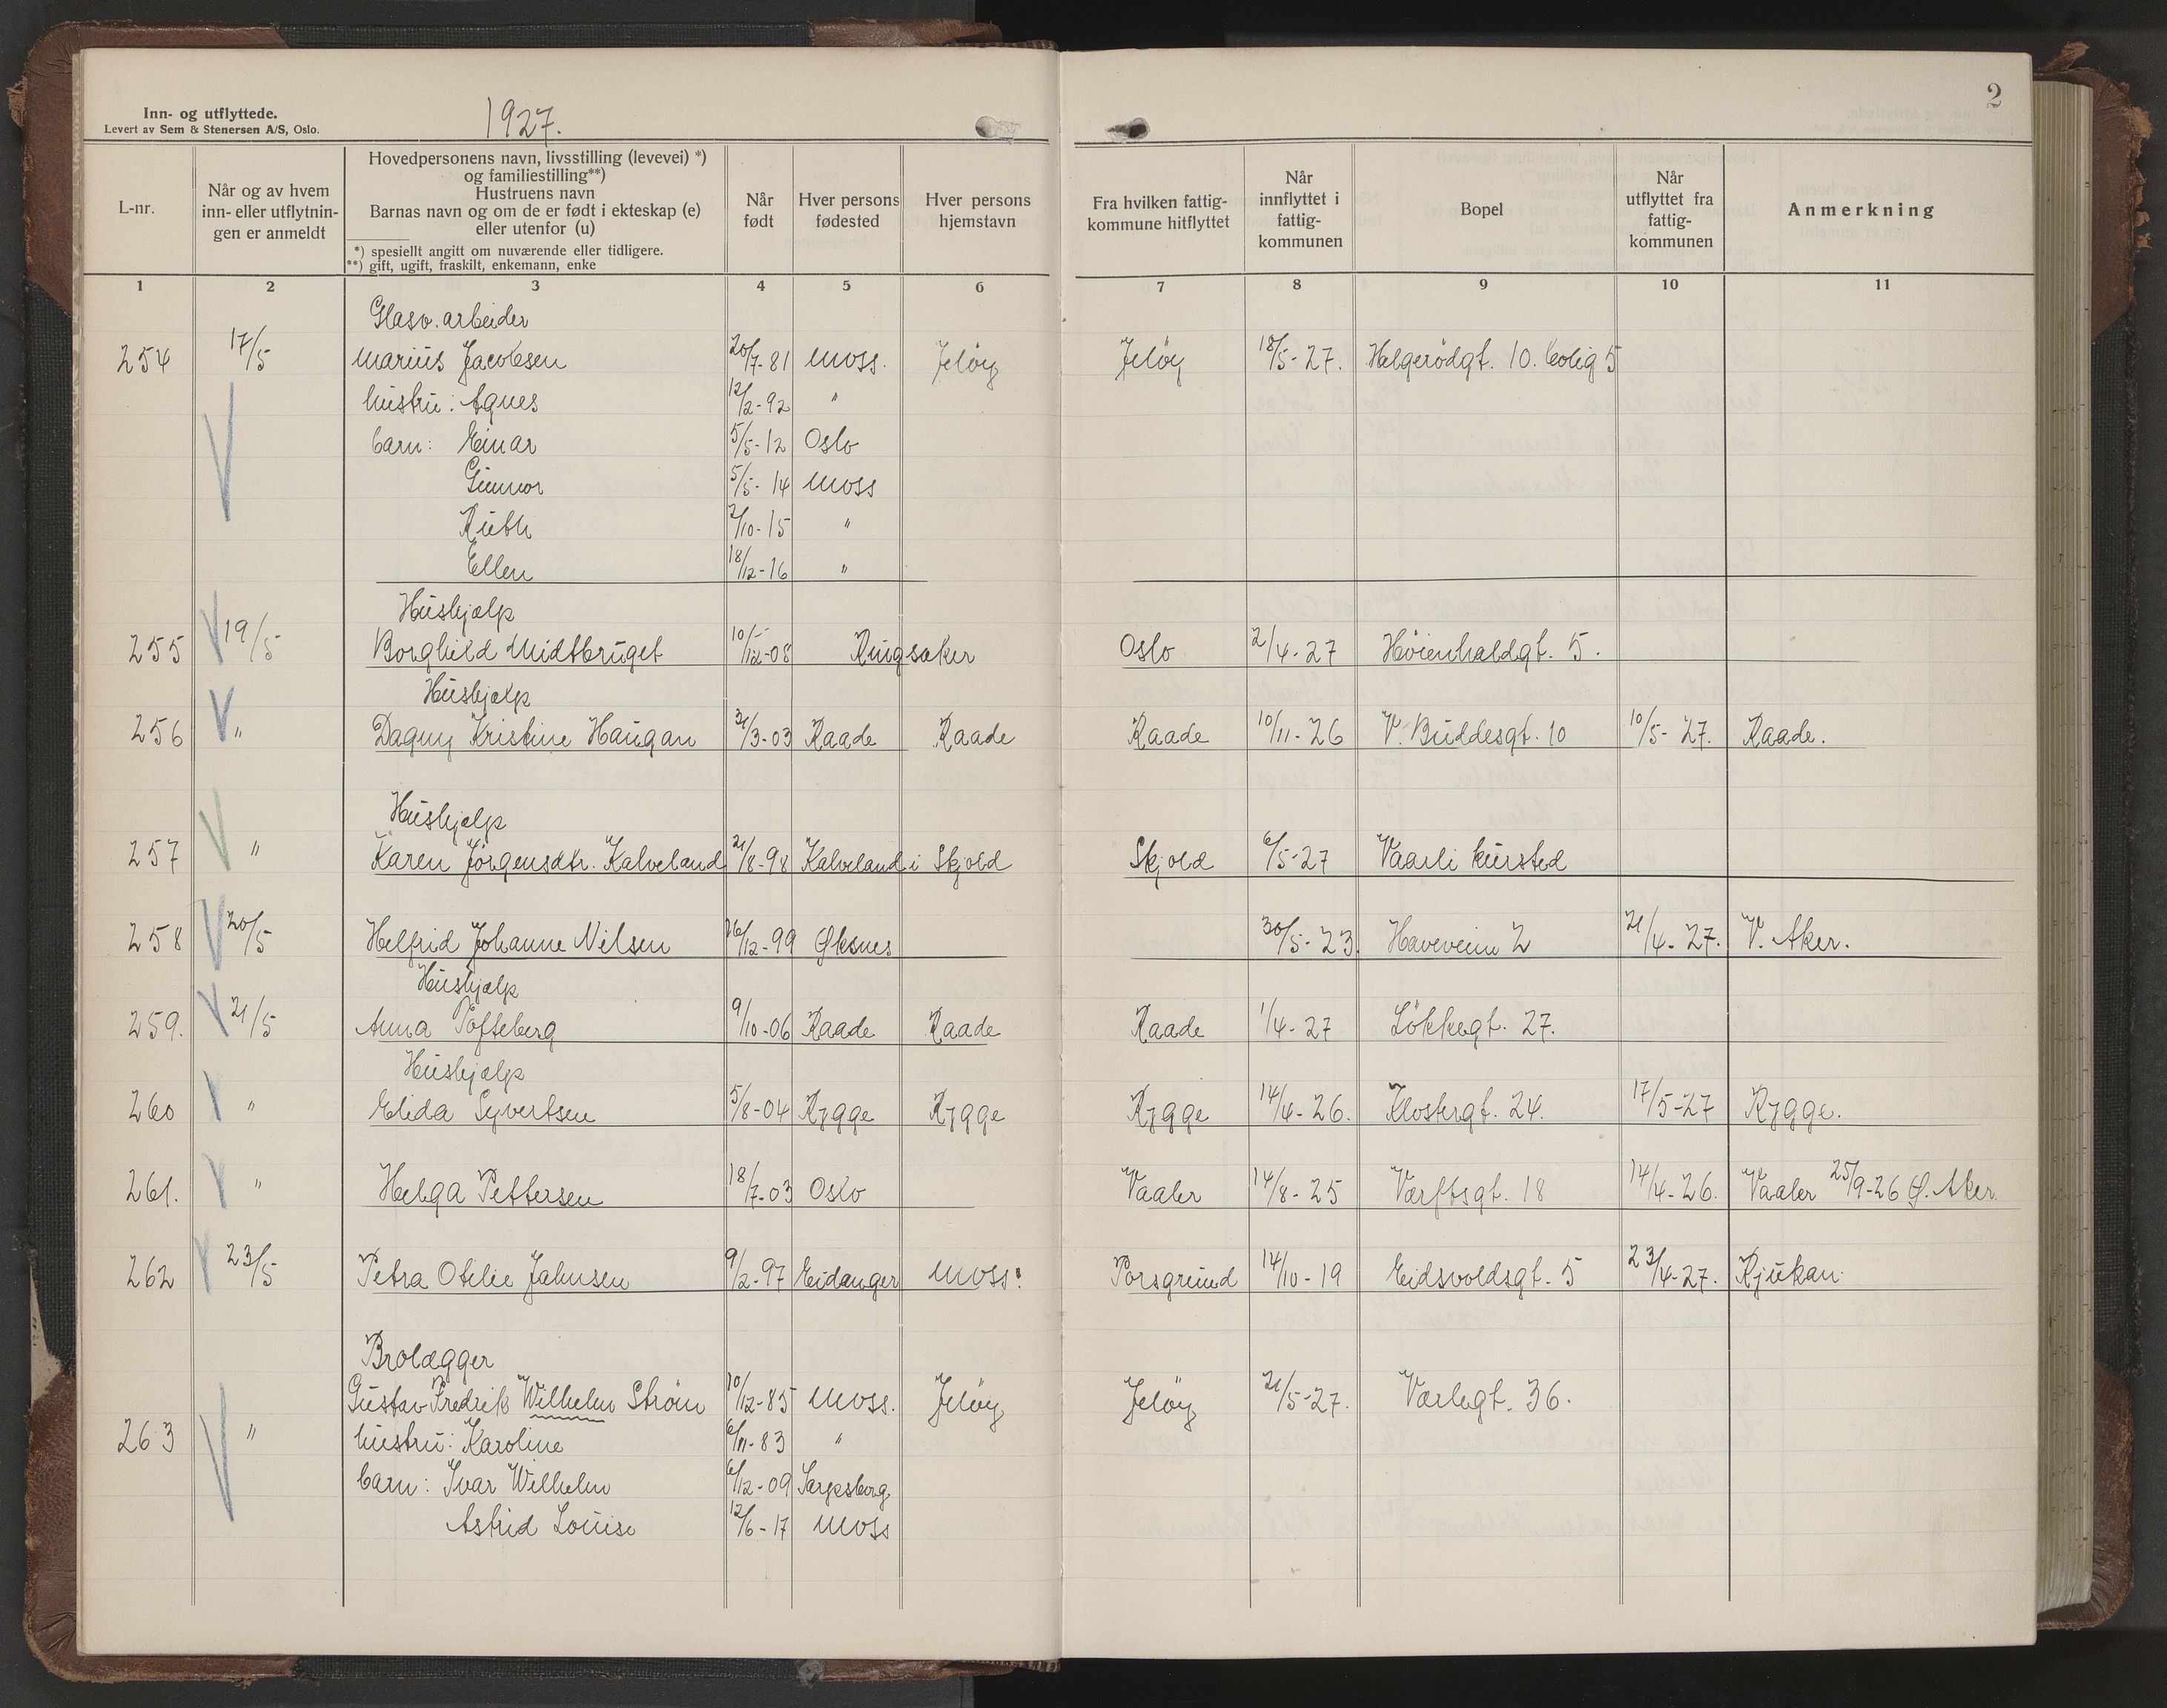 2
Inn- og utflyttede.
Levert av Sem & Stenersen A/S, Oslo.
1927.
L-nr.
Når og av hvem inn- eller utflytnin- gen er anmeldt
Hovedpersonens navn, livsstilling (levevei) *)
og familiestilling**)
Hustruens navn
Barnas navn og om de er født i ekteskap (e)
eller utenfor (u)
*) spesiellt angitt om nuværende eller tidligere.
**) gift, ugift, fraskilt, enkemann, enke
Når født
Hver persons fødested
Hver persons hjemstavn
Fra hvilken fattig- kommune hitflyttet
Når innflyttet i fattig- kommunen
Bopel
Når utflyttet fra fattig- kommunen
Anmerkning
1 2 3 4 5 6 7 8 9 10 11
Glasv. arbeider
254 17/5 Marius Jacobsen 20/7-81 Moss. Jeløy Jeløy 18/5-27. Helgerödgt. 10. bolig 5
hustru: Agnes 12/2-92 "
barn: Einar 5/5-12 Oslo
Gunnor 5/5-14 Moss
Ruth 2/10-15 "
Ellen 18/12-16 "
Hushjælp
255 19/5 Borghild Midtbruget 10/12-08 Ringsaker Oslo 2/4-27 Höienhaldgt. 5.
Hushjælp
256 " Dagny Kristine Haugan 31/3-03 Raade Raade Raade 10/11-26 V. Buddesgt. 10 10/5-27. Raade.
Hushjælp
257 " Karen Jörgensdtr. Kalveland 21/8-98 Kalveland i Skjold Skjold 6/5-27 Vaarli kursted
258 20/5 Helfrid Johanne Nilsen 26/12-99 Øksnes 30/5-23. Haveveien 2 21/4-27. V. Aker.
Hushjælp
259. 21/5 Anna Tofteberg 9/10-06 Raade Raade Raade 1/4-27 Lökkegt. 27.
Hushjælp
260 " Elida Syvertsen 5/8-04 Rygge Rygge Rygge 14/4-26. Klostergt. 24. 17/5-27 Rygge.
261. " Helga Pettersen 18/7-03 Oslo Vaaler 14/8-25 Værftsgt. 18 14/4-26. Vaaler 25/9-26 Ø. Aker.
262 23/5 Petra Otilie Jahnsen 9/2-97 Eidanger Moss. Porsgrund 14/10-19 Eidsvoldsgt. 5 23/4-27. Rjukan.
Brolægger
Gustav Fredrik Wilhelm Ström 10/12-85 Moss. Jeløy Jeløy 21/5-27. Varlegt. 36.
263 " hustru: Karoline 6/11-83 "
barn: Ivar Wilhelm 6/12-09 Sarpsborg
Astrid Louise 12/6-17 Moss